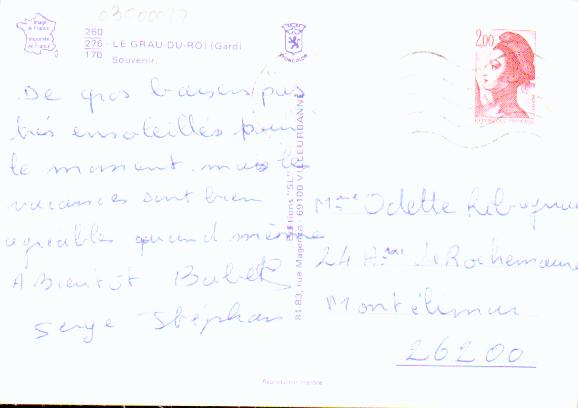 03500077
Image de France
Imprimée de France
260
276 - LE GRAU-DU-ROI (Gard)
170 Souvenir.
2,00
De gros baisers pas
très ensoleillés pour
le moment mais les
vacances sont bien
agréables quand même
A Bientôt Babeth
Serge Stéphan
Editions "SL"
81-83, rue Magenta - 69100 VILLEURBANNE
Mme Odette
24 Ave de Rochemaure
Montélimar
26200
Reproduction interdite